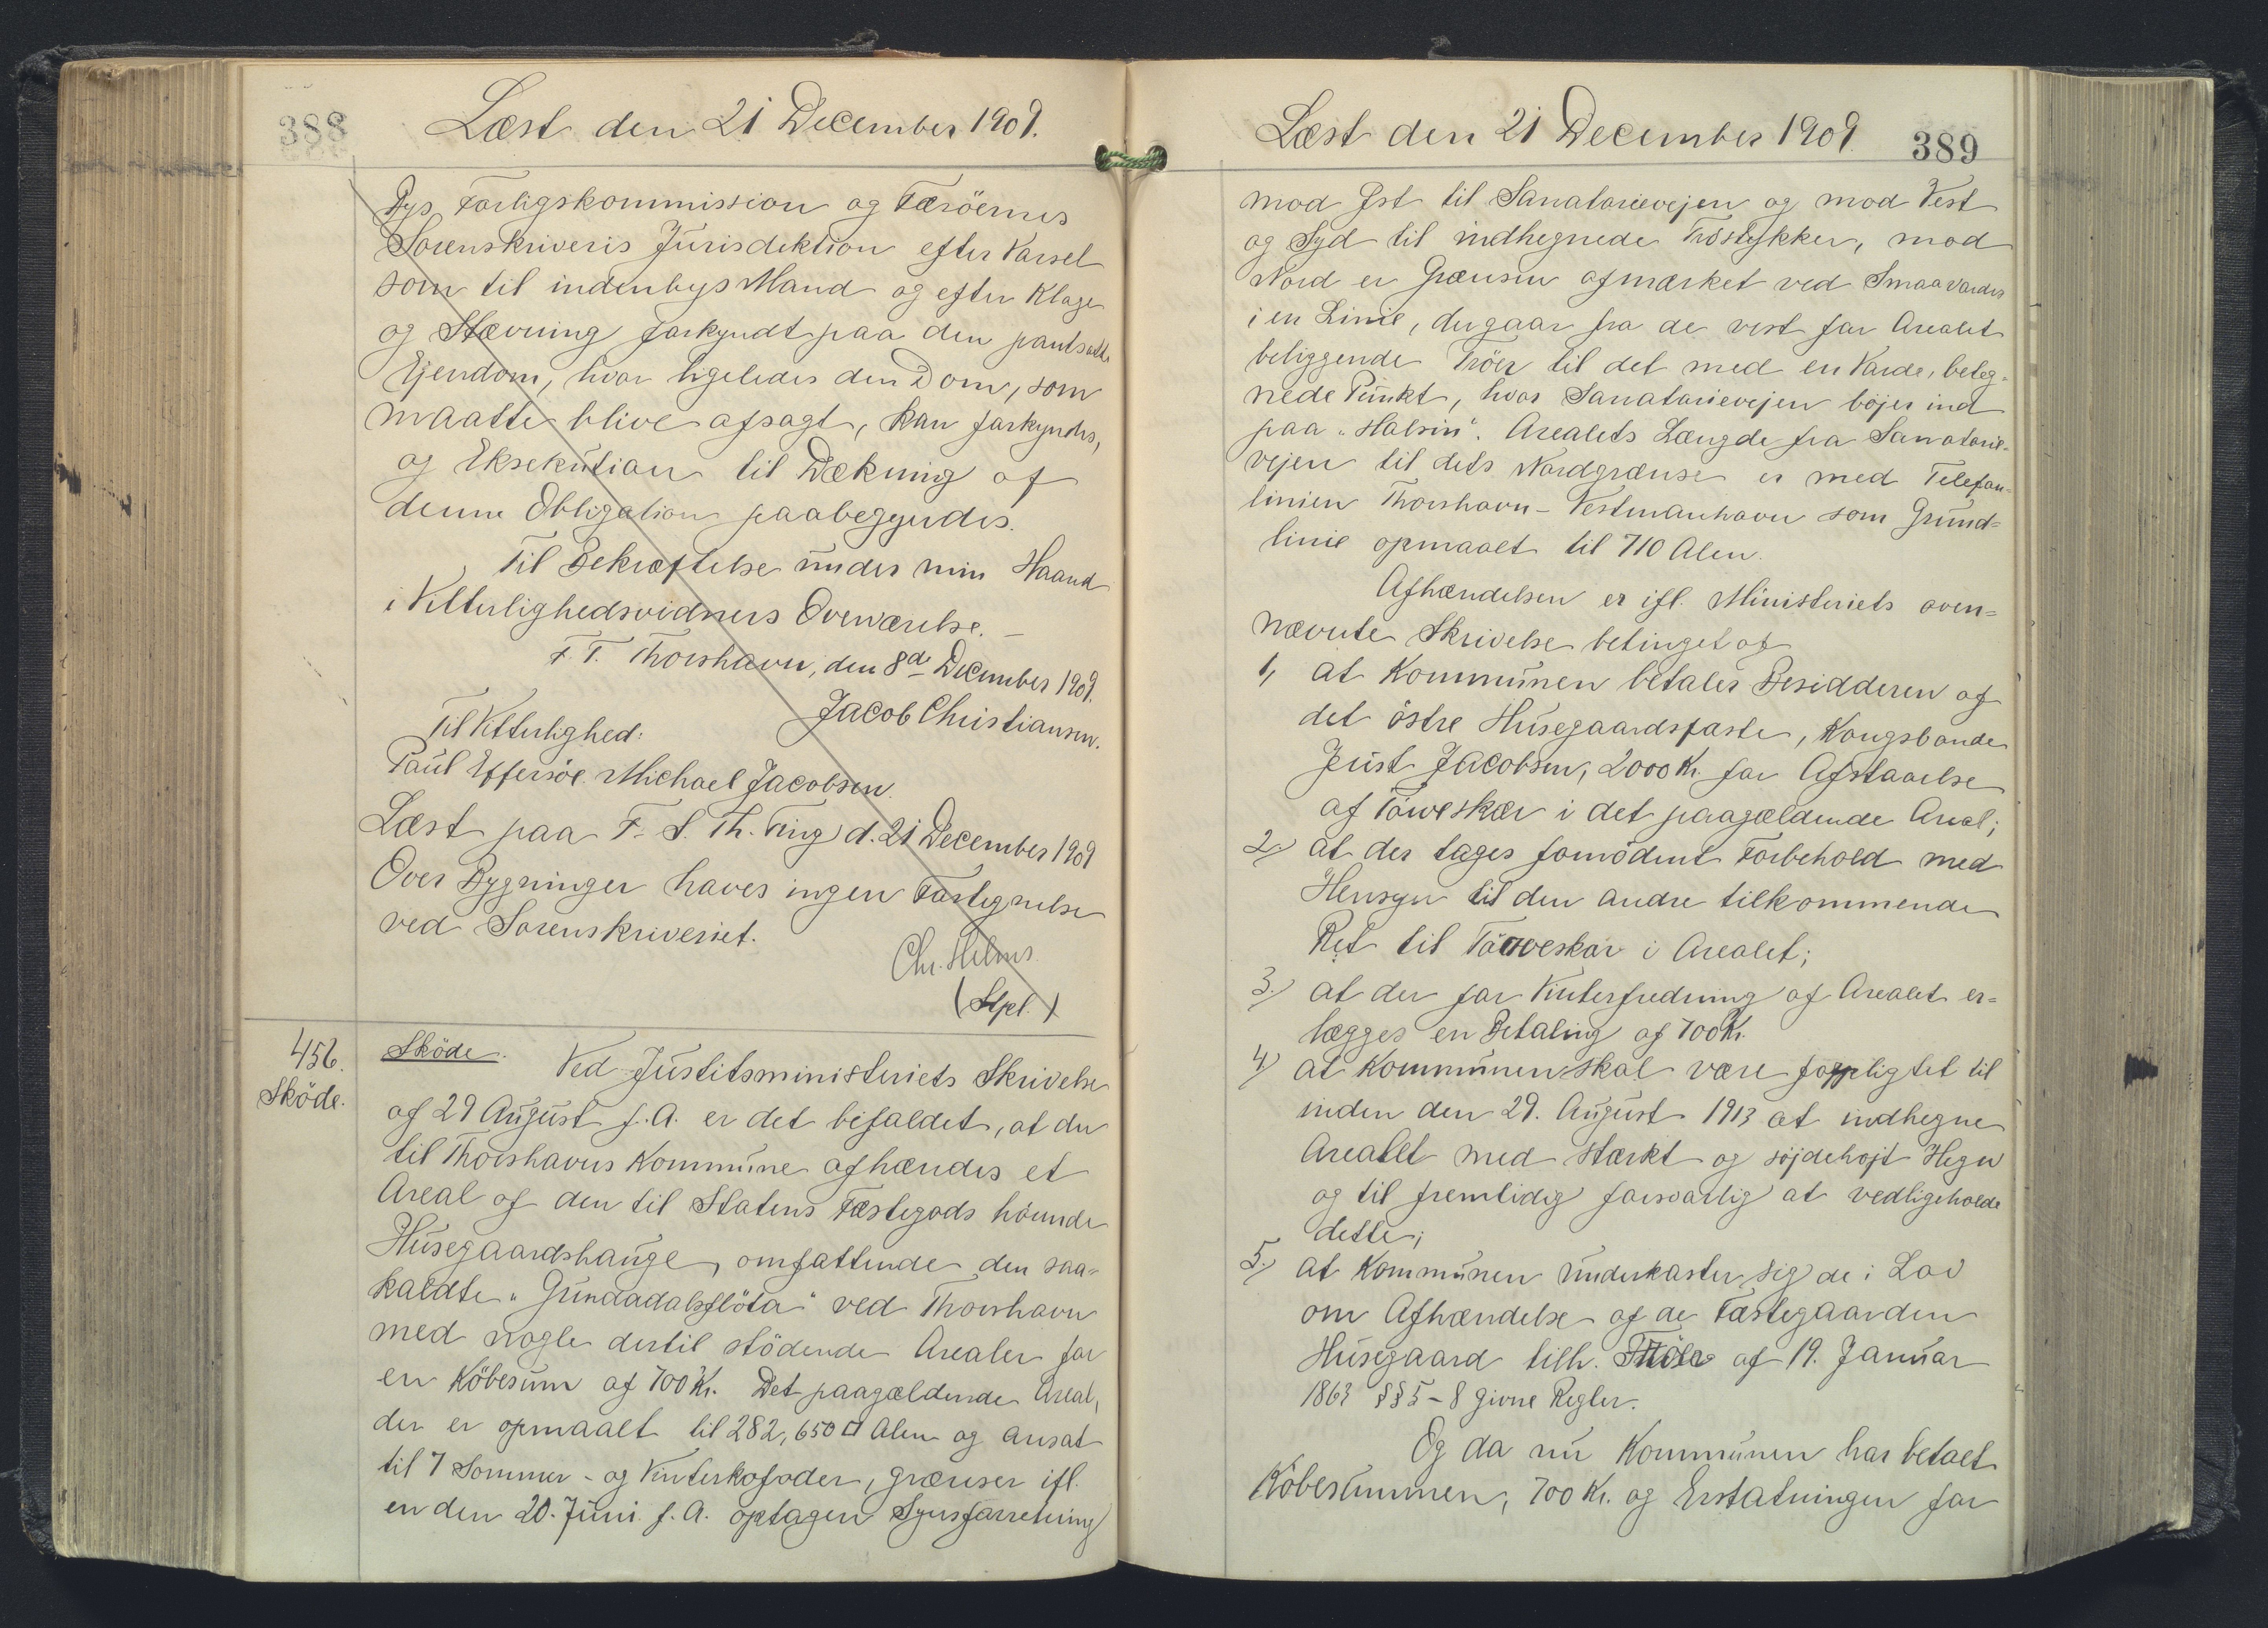 388
Læst den 21 December 1909.
Bys Forligskommission og Færöernes
Sorenskriveris Jurisdiktion efter Varsel
som til indenbys Mand og efter Klage
og Stævning forkyndt paa den pantsatte
Ejendom, hvor ligeledes den Dom, som
maatte blive afsagt, kan forkyndes,
og Eksekution til Dækning af
denne Obligation paabegyndes.
Til Bekræftelse under min Haand
i Vitterlighedsvidners Overværelse. –
F. T. Thorshavn, den 8de December 1909.
Jacob Christiansen.
Til Vitterlighed:
Paul Effersöe. Michael Jacobsen.
Læst paa F. S. Th. Ting d. 21 December 1909
Over Bygninger haves ingen Fortegnelse
ved Sorenskriveriet.
Chr. Helms.
(Stpl.)
456.
Sköde.
Sköde. Ved Justitsministeriets Skrivelse
af 29 August f. A. er det bifaldet, at der
til Thorshavns Kommune afhændes et
Areal af den til Statens Fæstegods hörende
Husegaardshauge, omfattende den saa-
kaldte "Gundadalsflöta" ved Thorshavn
med nogle dertil stödende Arealer for
en Köbesum af 700 Kr. Det paagældende Areal,
der er opmaalt til 282,650 □ Alen og ansat
til 7 Sommer- og Vinterkofoder, grænser ifl.
en den 20. Juni f. A. optagen Synsforretning
Læst den 21 December 1909. 389
mod Øst til Sanatorievejen og mod Vest
og Syd til indhegnede Tröstykker, mod
Nord er Grænsen afmærket ved Smaavarder
i en Linie, der gaar fra de vest for Arealet
beliggende Tröer til det med en Varde, beteg=
nede Punkt, hvor Sanatorievejen böjer ind
paa "Halsin". Arealets Længde fra Sanatorie=
vejen til dets Nordgrænse er med Telefon=
linien Thorshavn – Vestmanhavn som Grund=
linie opmaalt til 710 Alen.
Afhændelsen er ifl. Ministeriets oven=
nævnte Skrivelse betinget af
1, at Kommunen betaler Besidderen af
det östre Husegaardsfæste, Kongsbonde
Just Jacobsen, 2000 Kr. for Afstaaelse
af Törveskær i det paagældende Areal;
2.) at der tages fornödent Forbehold med
Hensyn til den andre tilkommende
Ret til Törveskær i Arealet;
3.) at der for Vinterfredning af Arealet er=
lægges en Betaling af 700 Kr.
4) at Kommunen skal være forpligtet til
inden den 29. August 1913 at indhegne
Arealet med stærkt og söjdehøjt Hegn
og til fremtidig forsvarlig at vedligeholde
dette;
5.) at Kommunen underkaster sig de i Lov
om Afhændelse af de Fæstegaarden
Husegaard tilh. Tröer af 19. Januar
1863 §§ 5–8 givne Regler.
Og da nu Kommunen har betalt
Köbesummen, 700 Kr. og Erstatningen for